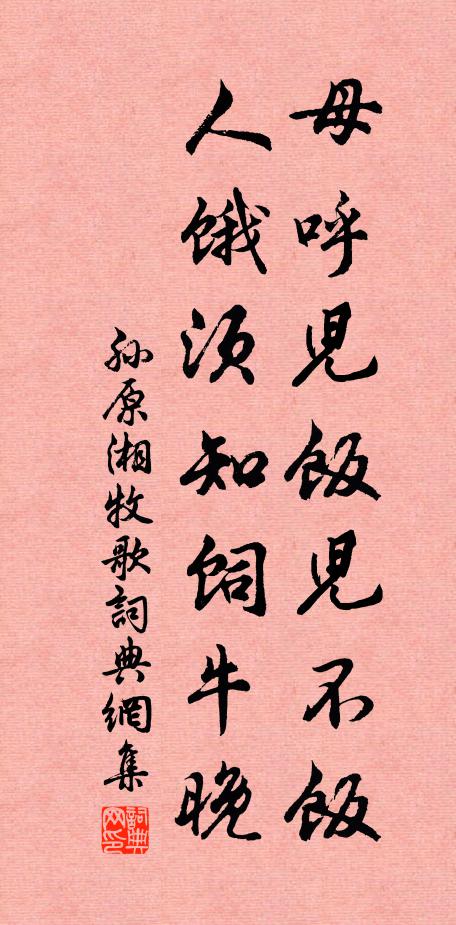 母呼児飯児不飯
人餓須知飼牛晚
孫原湘牧歌詞典網集
詞典网印